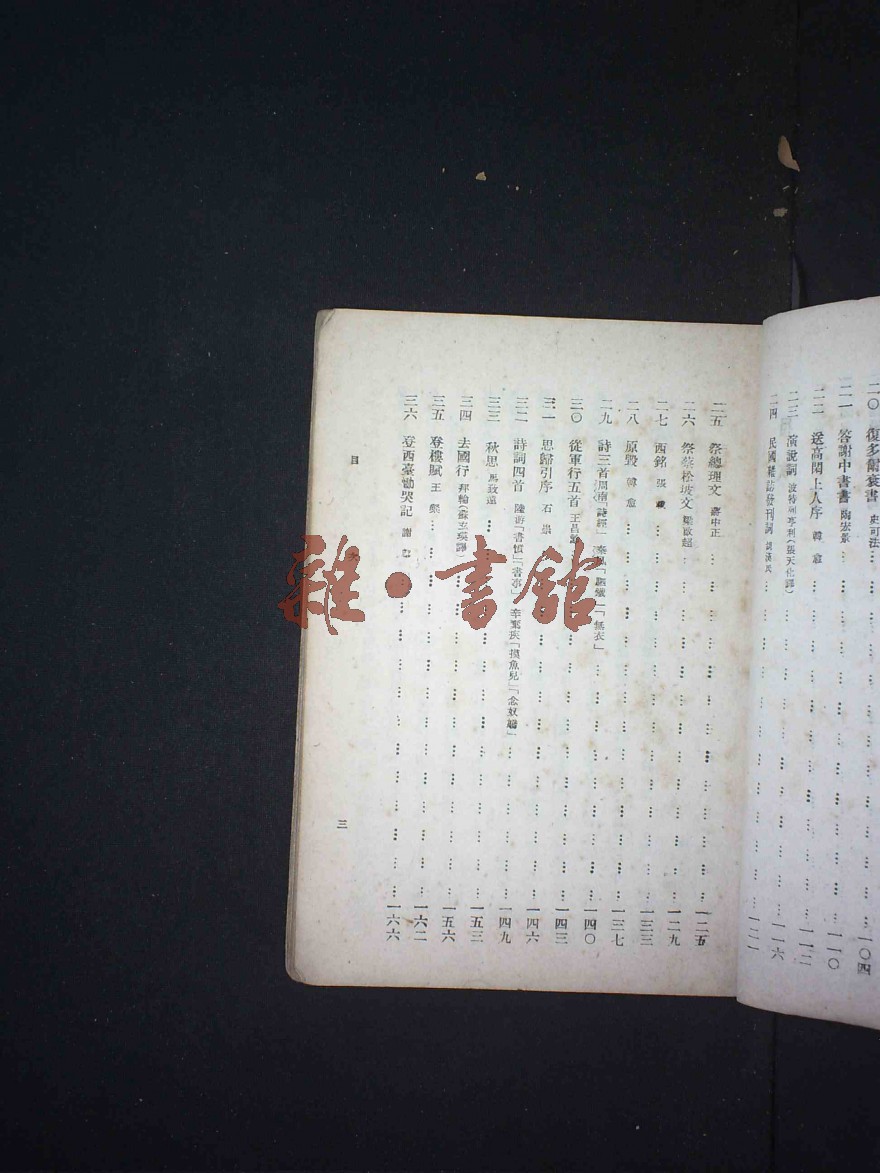 二〇 復多爾袞書 史可法 一〇四
二一 答謝中書書 陶宏景 一一〇
二二 送高閑上人序 韓愈 一一二
二三 演說詞 波特列亨利(張天化譯) 一一六
二四 民國雜誌發刊詞 胡漢民 一二一
二五 祭總理文 蔣中正 一二五
二六 祭蔡松坡文 梁啟超 一二九
二七 西銘 張載 一三三
二八 原毀 韓愈 一三七
二九 詩三首 周南「詩經」秦風「無衣」 一四〇
三〇 從軍行五首 王昌齡 一四三
三一 思歸引序 石崇 一四六
三二 詩詞四首 陸游「書憤」「書事」辛棄疾「摸魚兒」「念奴嬌」 一四九
三三 秋思 馬致遠 一五三
三四 去國行 拜輪(蘇玄瑛譯) 一五六
三五 登樓賦 王粲 一六二
三六 登西臺慟哭記 謝翱 一六六
目
三
雜·書館